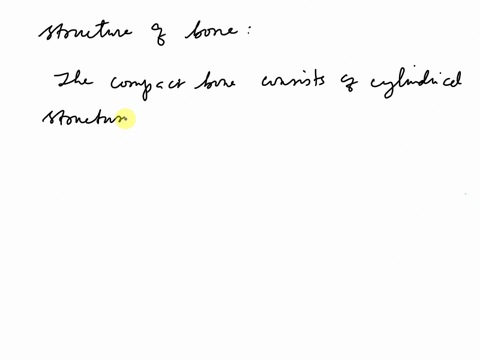 structure of bone :
The compact bone consists of cylindrical
structur